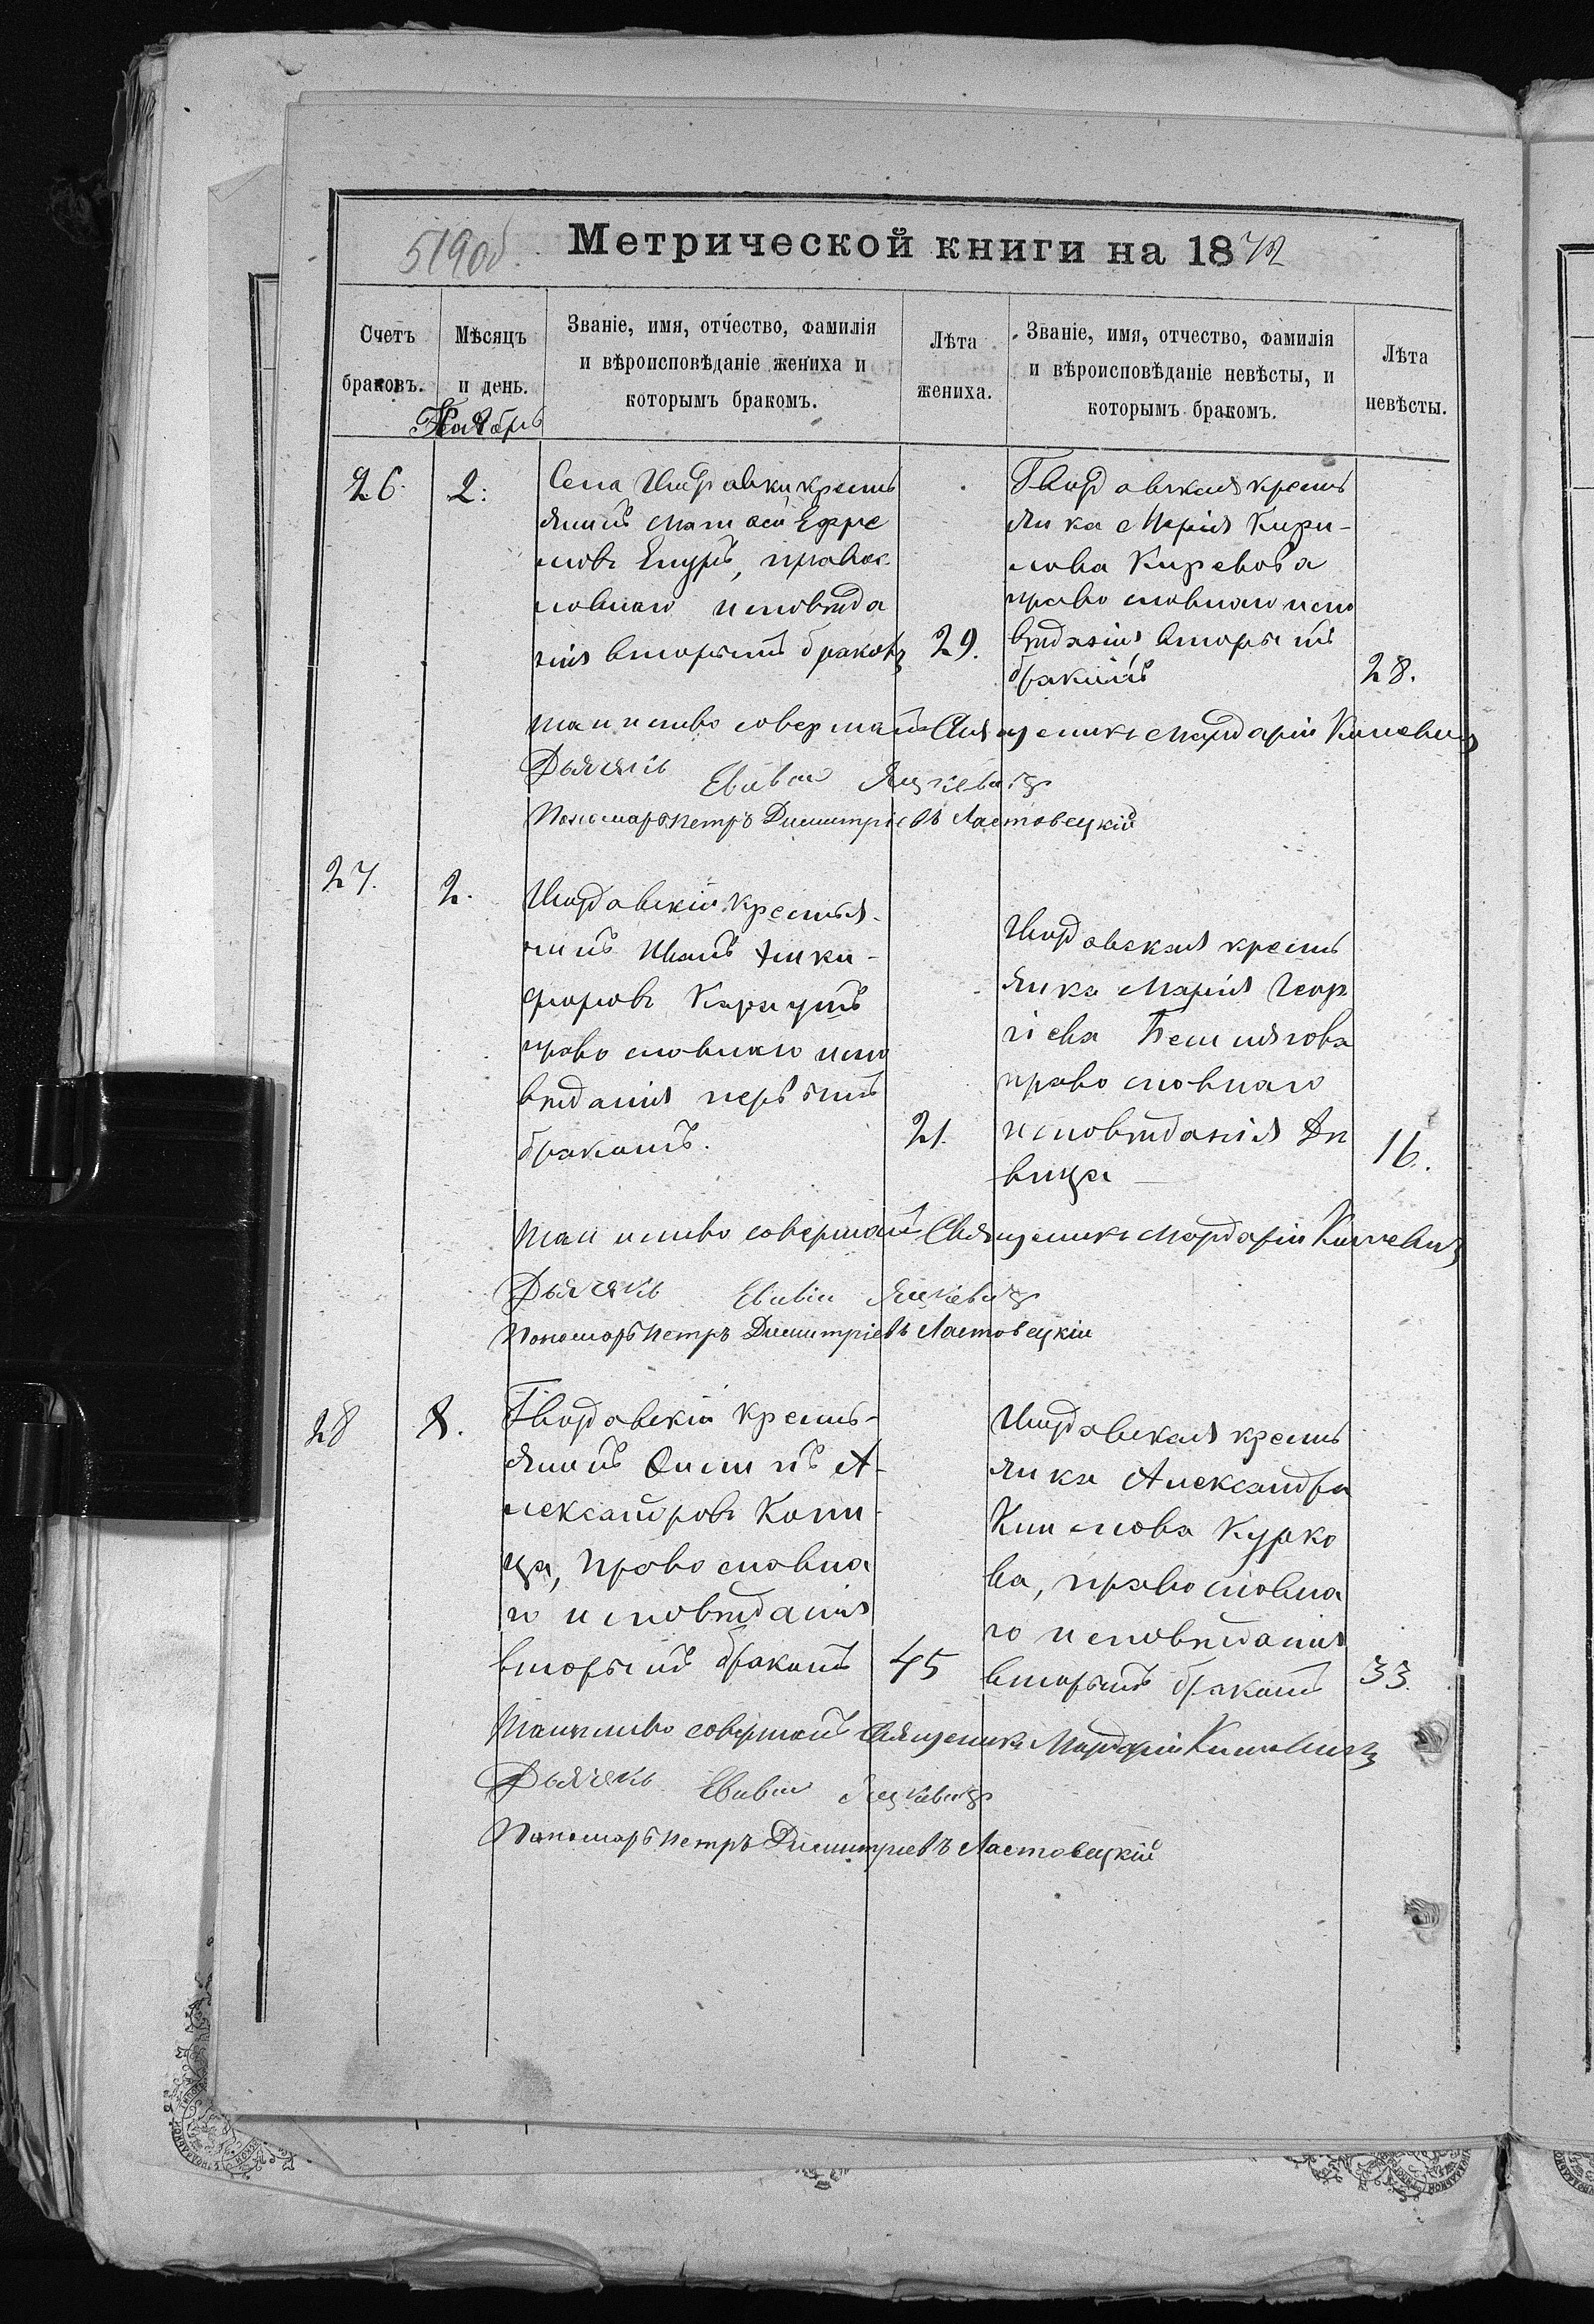 519об
Метрической книги на 1872
Счетъ браковъ.
Мѣсяцъ и день.
Званіе, имя, отчество, фамилія и вѣроисповѣданіе жениха и которымъ бракомъ.
Лѣта жениха.
Званіе, имя, отчество, фамилія и вѣроисповѣданіе невѣсты, и которымъ бракомъ.
Лѣта невѣсты.
Ноябрь
26.
2.
Села кресть
янинъ Матѳей Ефре
мовъ Епуръ, правос
ловнаго исповѣда
нія вторымъ бракомъ
29.
кресть
янка Марія Кири-
лова Кирева
православнаго испо
вѣданія вторымъ
бракомъ
28.
Таинство совершалъ Священикъ Мардарій
Дьячекъ Яцкевичъ
Пономарь Петръ Димитріевъ Ластовецкій
27.
2.
крестья-
нинъ Иванъ Ники-
форовъ
православнаго испо
вѣданія первымъ
бракомъ.
21.
кресть
янка Марія Геор
гіева
православнаго
исповѣданія дѣ
вица
16.
Таинство совершалъ Священикъ Мардарій
Дьячекъ Яцкевичъ
Пономарь Петръ Димитріевъ Ластовецкій
28
8.
кресть-
янинъ А-
лександровъ Копи-
ца, православна
го исповѣданія
вторымъ бракомъ
45
кресть
янка Александра
Курко
ва, православна
го исповѣданія
вторымъ бракомъ
33.
Таинство совершалъ Священикъ Мардарій
Дьячекъ Яцкевичъ
Пономарь Петръ Димитріевъ Ластовецкій